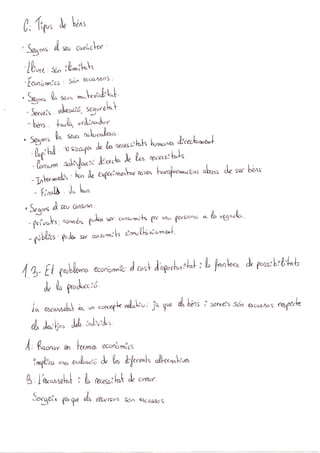 C. Tipus de béns.
· Segons el seu caràcter.
- Lliure: són il·limitats.
- Econòmics: són escassos.
· Segons la seva materialitat.
- Serveis: educació, seguretat
- béns: taula, ordinador
· Segons la seva naturalesa
- Capital: de les necessitats humanes directament
- Consum: satisfacció directa de les necessitats
- Intermedis: han de experimentar noves transformacions abans de ser béns
- Finals: Ja han
· Segons el seu consum.
- privats: només poden ser consumits per una persona a la vegada.
- públics: poden ser consumits simultàniament.
1.3.- El problema econòmic: el cost d'oportunitat i la frontera de possibilitats
de la producció.
La escassetat és un concepte relatiu: ja que els béns i serveis són escassos respecte
els desitjos dels individus.
A. Raonar en termes econòmics
implica una avaluació de les diferents alternatives
B. L'escassetat i la necessitat de crear.
Sorgeix perque els recursos són escassos